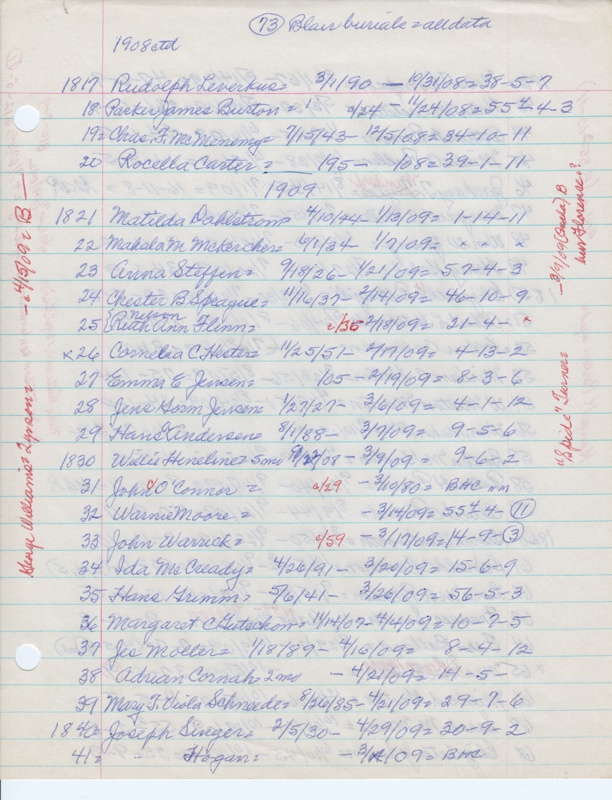 73 Blair burials = all data
1908 ctd
1817 Rudolph Leverkus = 3/1/90 — 10/31/08 = 38-5-7
18 Parker James Burton = 1 2/24 - 11/24/08 = 55-4-3
19 = Chas. F. McMenemy = 7/15/43 - 12/5/08 = 34-10-11
20 Rocella Carter = 195 - /08 = 39-1-11
1909
1821 Matilda Dahlstrom 4/10/44 - 1/13/09 = 1-14-11
22 Mahala M. McKercher = 6/1/34 - 1/7/09 = x x x
23 Anna Steffen = 9/18/26 - 1/21/09 = 57-4-3
24 Chester B. Sprague = 11/16/37 - 2/14/09 = 46-10-9
25 { nelson Ruth Ann Flinn = c/35 2/18/09 = 21-4- x
x 26 Cornelia C. Hester = 11/25/51 - 2/17/09 = 4-13-2
27 Emma E Jensen = /05 - 2/19/09 = 8-3-6
28 Jens Gorm Jensen = 1/27/27 - 3/6/09 = 4-1-12
29 Hans Andersen = 8/1/88 - 3/7/09 = 9-5-6
1830 Willis Hineline = 5 mo /08 - 3/9/09 = 9-6-2
31 John O'Connor = c/29 - 3/10/80 = BHC
32 Warni Moore = - 3/14/09 = 55-4-11
33 John Warrick = c/59 - 3/17/09 = 14-9-3
34 Ida McCready = 4/26/91 - 3/20/09 = 15-6-9
35 Hans Grimm = 5/6/41 - 3/26/09 = 56-5-3
36 Margaret C Gutschow = 11/14/07 - 4/4/09 = 10-7-5
37 Jes Moeller = 1/18/89 - 4/16/09 = 8-4-12
38 Adrian Cornah = 2 mo - 4/21/09 = 14-5-
39 Mary F. Viola Schnader = 8/26/85 - 4/21/09 = 29-7-6
1840 Joseph Singer = 2/5/30 - 4/29/09 = 30-9-2
41 = - Hogan = - 3/ /09 = BHC
George Williams = Lynson = — c 4/15/09 = B —
"Spide" Turner = — 3/9/09 B
Florence?